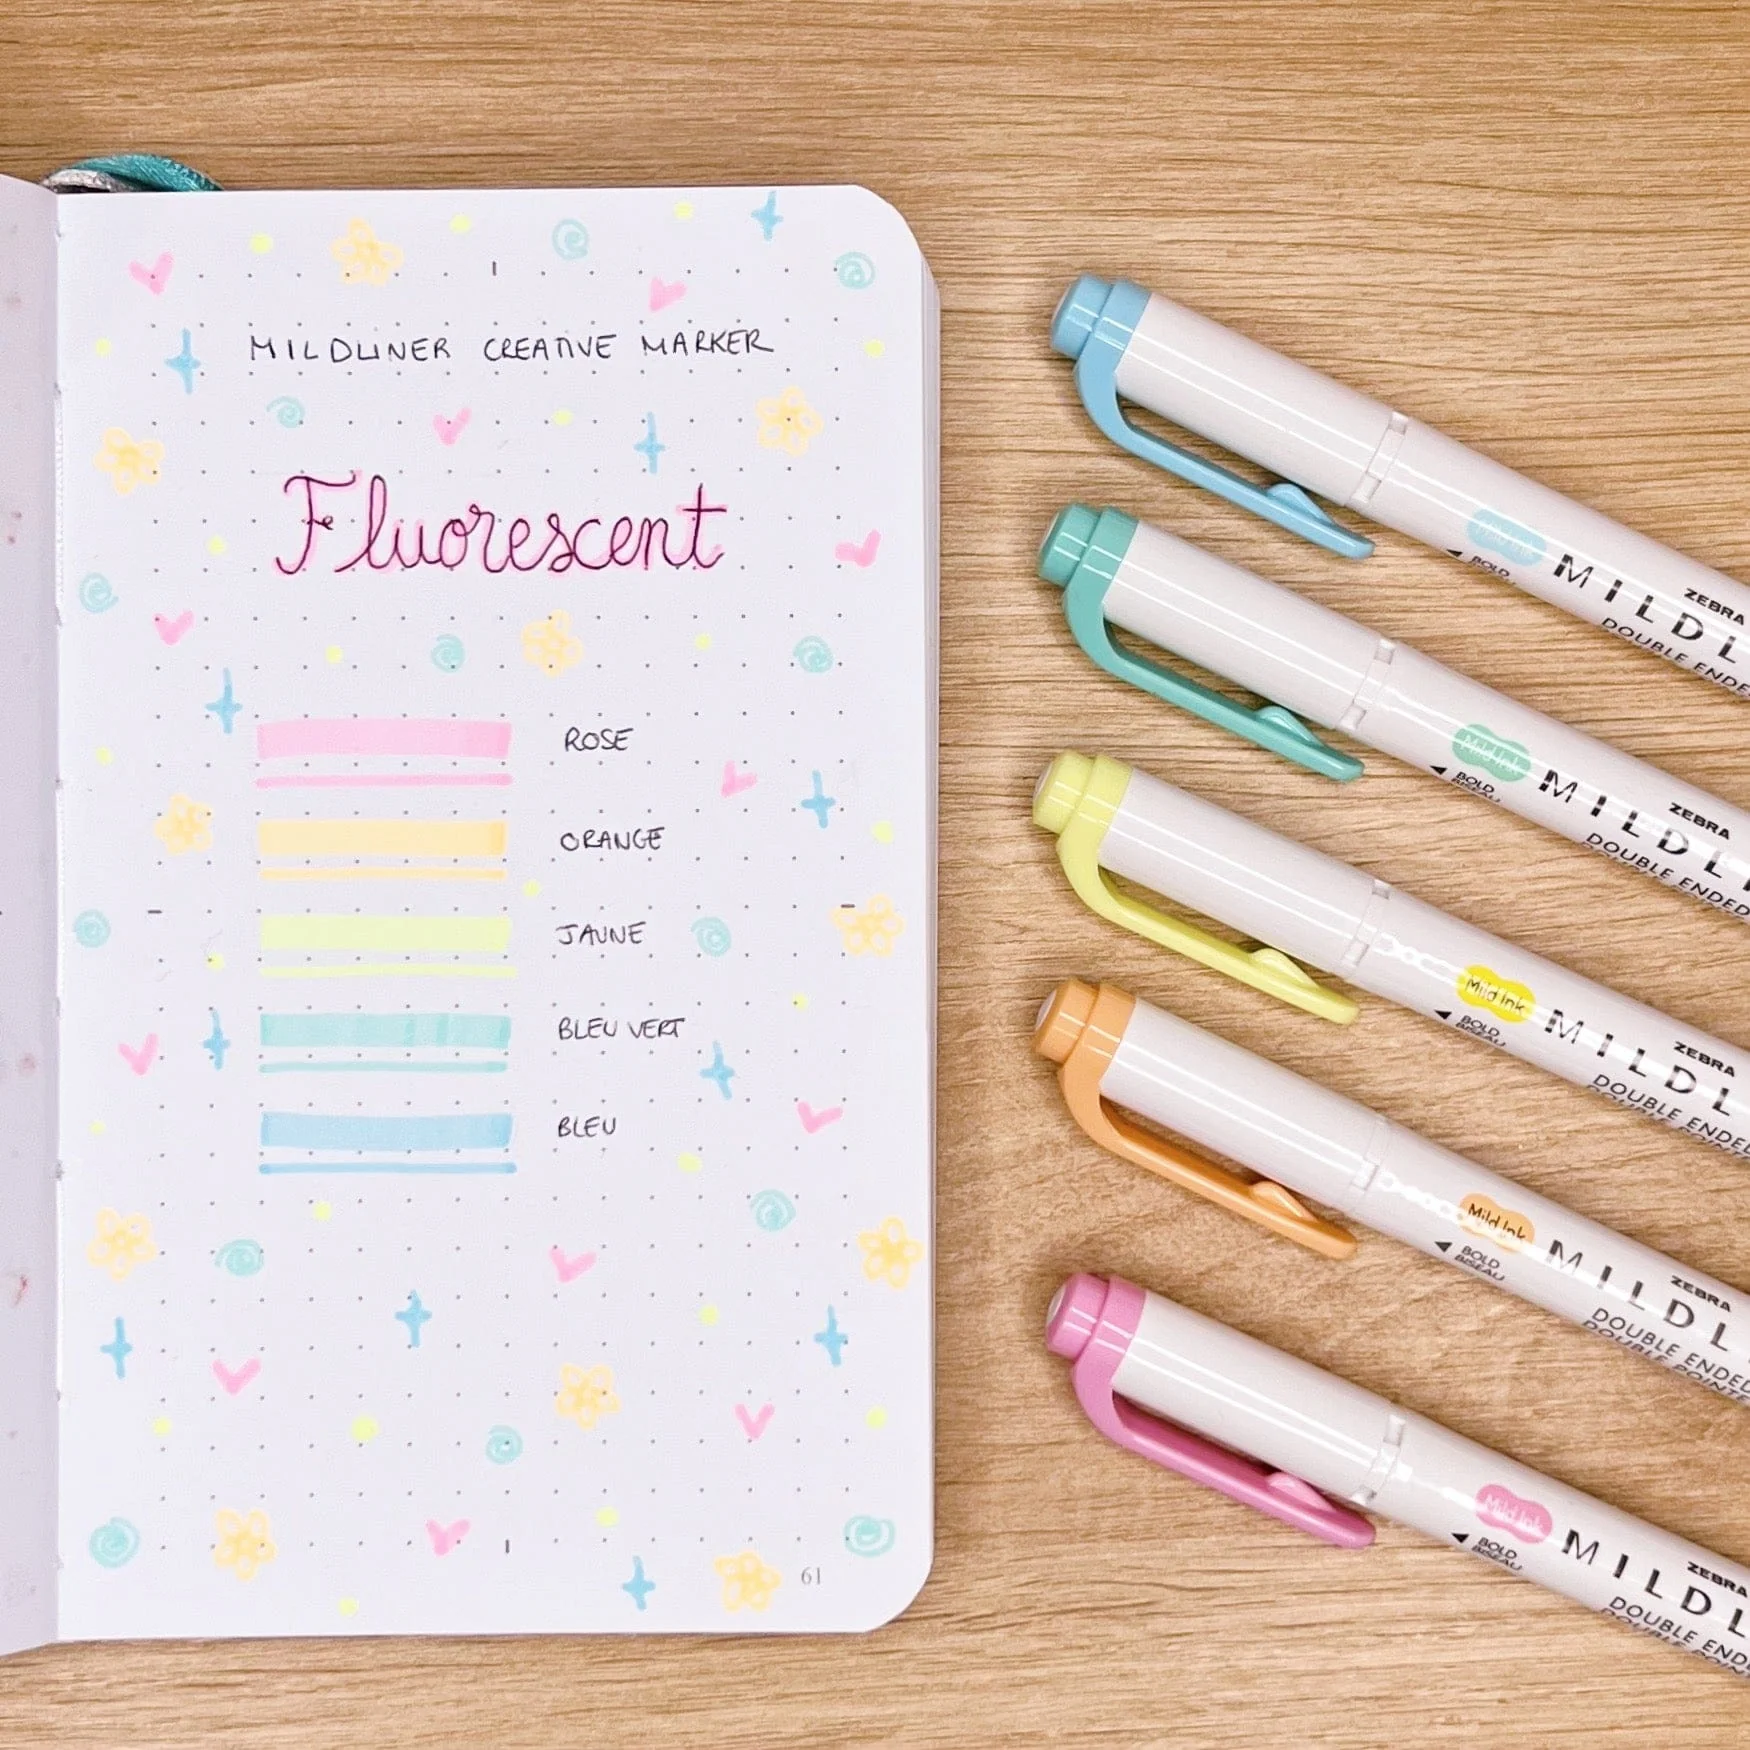 MILDLINER CREATIVE MARKER
Fluorescent
ROSE
ORANGE
JAUNE
BLEU VERT
BLEU
61
Mild Ink
BOLD
ZEBRA
MILDL
DOUBLE ENDE
Mild Ink
BOLD
BISEAU
ZEBRA
MILDL
DOUBLE ENDED
Mild Ink
BOLD
BISEAU
ZEBRA
MILDL
DOUBLE ENDED
Mild Ink
BOLD
BISEAU
ZEBRA
MILDL
DOUBLE ENDED
DOUBLE POINTE
Mild Ink
BOLD
BISEAU
ZEBRA
MILDL
DOUBLE ENDE